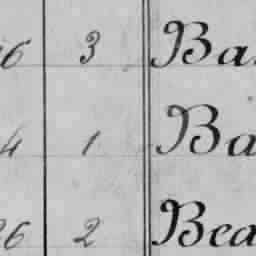 6 3 Ba
4 1 Ba
26 2 Bea